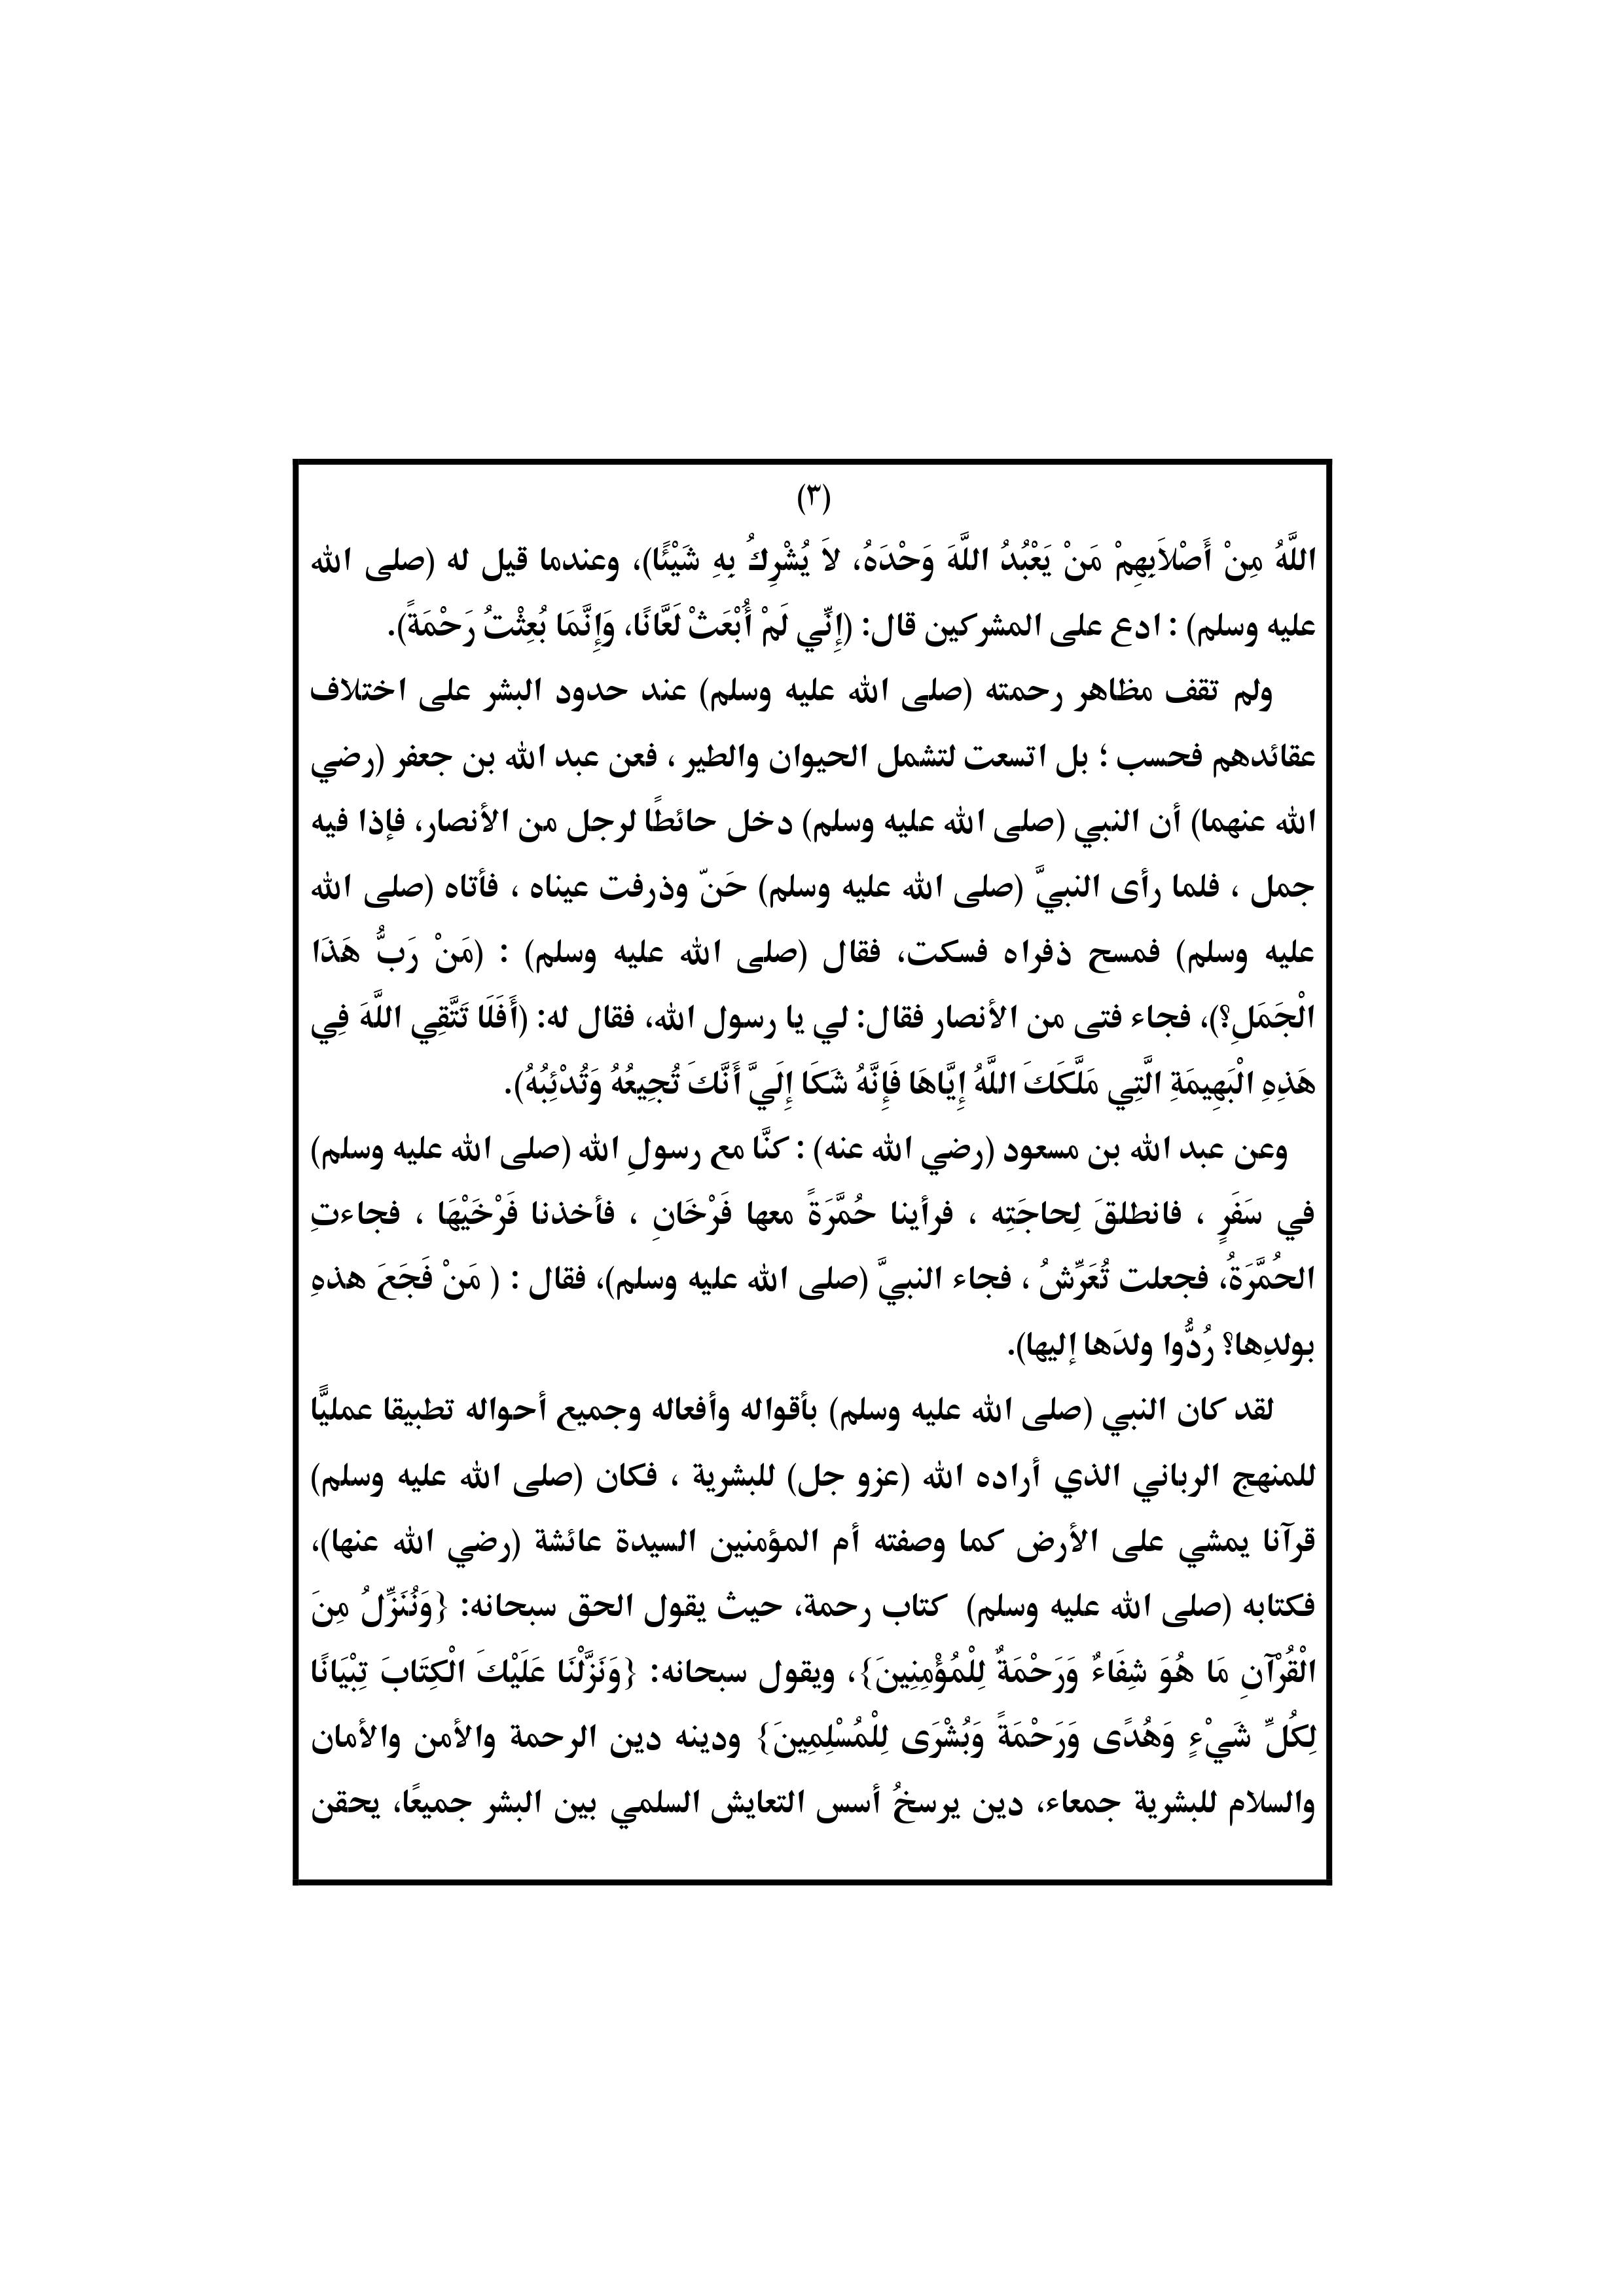 (٣)
اللَّهُ مِنْ أَصْلاَبِهِمْ مَنْ يَعْبُدُ اللَّهَ وَحْدَهُ، لاَ يُشْرِكُ بِهِ شَيْئًا)، وعندما قيل له (صلى الله
عليه وسلم) : ادع على المشركين قال: (إِنِّي لَمْ أُبْعَثْ لَعَّانًا، وَإِنَّمَا بُعِثْتُ رَحْمَةً).
ولم تقف مظاهر رحمته (صلى الله عليه وسلم) عند حدود البشر على اختلاف
عقائدهم فحسب ؛ بل اتسعت لتشمل الحيوان والطير ، فعن عبد الله بن جعفر (رضي
الله عنهما) أن النبي (صلى الله عليه وسلم) دخل حائطًا لرجل من الأنصار، فإذا فيه
جمل ، فلما رأى النبيَّ (صلى الله عليه وسلم) حَنّ وذرفت عيناه ، فأتاه (صلى الله
عليه وسلم) فمسح ذفراه فسكت، فقال (صلى الله عليه وسلم) : (مَنْ رَبُّ هَذَا
الْجَمَلِ؟)، فجاء فتى من الأنصار فقال: لي يا رسول الله، فقال له: (أَفَلَا تَتَّقِي اللَّهَ فِي
هَذِهِ الْبَهِيمَةِ الَّتِي مَلَّكَكَ اللَّهُ إِيَّاهَا فَإِنَّهُ شَكَا إِلَيَّ أَنَّكَ تُجِيعُهُ وَتُدْئِبُهُ).
وعن عبد الله بن مسعود (رضي الله عنه) : كنَّا مع رسولِ الله (صلى الله عليه وسلم)
في سَفَرٍ ، فانطلقَ لِحاجَتِه ، فرأينا حُمَّرَةً معها فَرْخَانِ ، فأخذنا فَرْخَيْهَا ، فجاءتِ
الحُمَّرَةُ، فجعلت تُعَرِّشُ ، فجاء النبيَّ (صلى الله عليه وسلم)، فقال : ( مَنْ فَجَعَ هذهِ
بولدِها؟ رُدُّوا ولدَها إليها).
لقد كان النبي (صلى الله عليه وسلم) بأقواله وأفعاله وجميع أحواله تطبيقا عمليًّا
للمنهج الرباني الذي أراده الله (عزو جل) للبشرية ، فكان (صلى الله عليه وسلم)
قرآنا يمشي على الأرض كما وصفته أم المؤمنين السيدة عائشة (رضي الله عنها)،
فكتابه (صلى الله عليه وسلم) كتاب رحمة، حيث يقول الحق سبحانه: {وَنُنَزِّلُ مِنَ
الْقُرْآنِ مَا هُوَ شِفَاءٌ وَرَحْمَةٌ لِلْمُؤْمِنِينَ}، ويقول سبحانه: {وَنَزَّلْنَا عَلَيْكَ الْكِتَابَ تِبْيَانًا
لِكُلِّ شَيْءٍ وَهُدًى وَرَحْمَةً وَبُشْرَى لِلْمُسْلِمِينَ} ودينه دين الرحمة والأمن والأمان
والسلام للبشرية جمعاء، دين يرسخُ أسس التعايش السلمي بين البشر جميعًا، يحقن